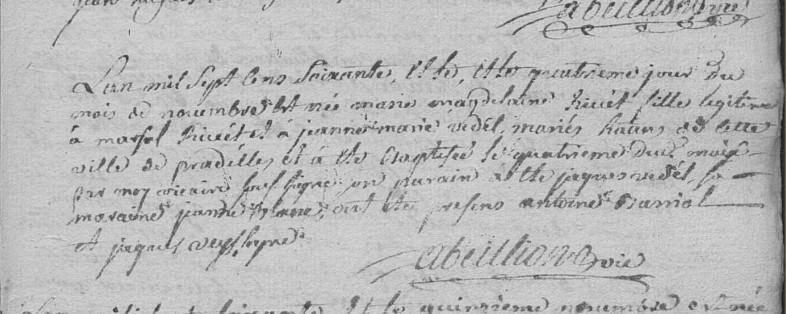 abeillion vic
L'an mil sept cens soixante, et le, et le quatrieme jour du
mois de novembre est née marie magdelaine Rivét fille legitime
à marsel Rivét et à jeanne marie vedél, mariés habns de cette
ville de pradélles et à éte baptisée le quatrieme du mois
par moy vicaire sousigné son parain a éte jaques vedél, sa
moraine jeanne blanc, ont éte presens antoine
et jaques
abeillion vic
et le quinzieme novembre est née